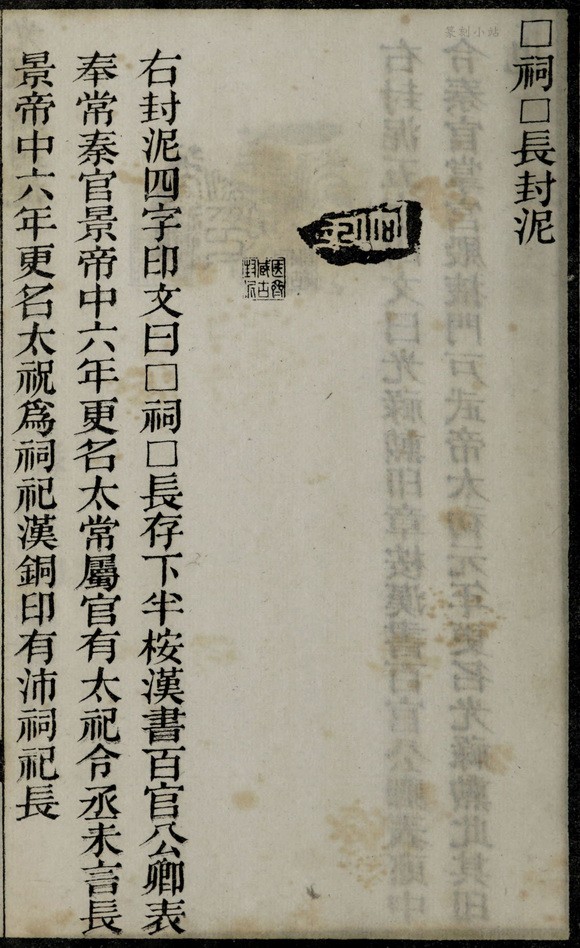 篆刻小站
□祠□長封泥
右封泥四字印文曰□祠□長存下半桉漢書百官公卿表
奉常秦官景帝中六年更名太常屬官有太祀令丞未言長
景帝中六年更名太祝爲祠祀漢銅印有沛祠祀長